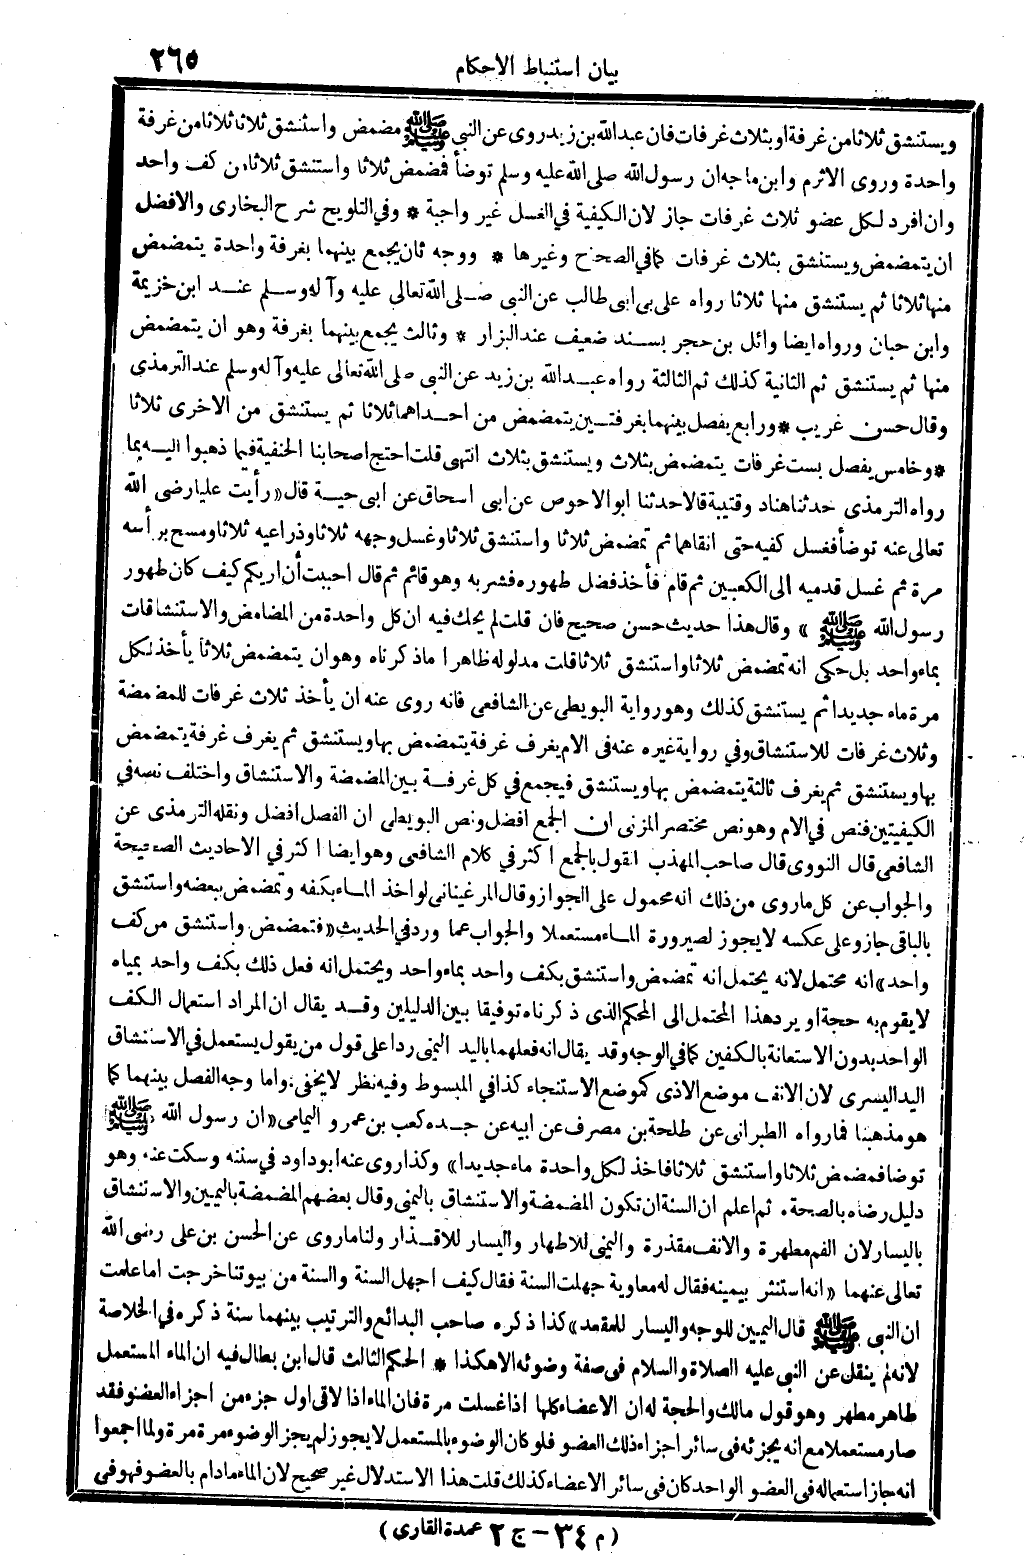 بيان استنباط الاحكام
٢٦٥
ويستنشق ثلاثا من غرفة او بثلاث غرفات فان عبدالله بن زيد روى عن النبي ﷺ مضمض واستنشق ثلاثا ثلاثا من غرفة
واحدة وروى الاثرم وابن ماجه ان رسول الله صلى الله عليه وسلم توضأ فمضمض ثلاثا واستنشق ثلاثا من كف واحد
وان افرد لكل عضو ثلاث غرفات جاز لان الكيفية في الغسل غير واجبة * وفي التلويح شرح البخارى والافضل
ان يتمضمض ويستنشق بثلاث غرفات كما في الصحاح وغيرها * ووجه ثان يجمع بينهما بغرفة واحدة يتمضمض
منها ثلاثا ثم يستنشق منها ثلاثا رواه على بن ابى طالب عن النبى صلى الله تعالى عليه وآله وسلم عند ابن خزيمة
وابن حبان ورواه ايضا وائل بن حجر بسند ضعيف عند البزار * وثالث يجمع بينهما بغرفة وهو ان يتمضمض
منها ثم يستنشق ثم الثانية كذلك ثم الثالثة رواه عبدالله بن زيد عن النبى صلى الله تعالى عليه وآله وسلم عند الترمذى
وقال حسن غريب * ورابع يفصل بينهما بغرفتين يتمضمض من احداهما ثلاثا ثم يستنشق من الاخرى ثلاثا
* وخامس يفصل بست غرفات يتمضمض بثلاث ويستنشق بثلاث انتهى قلت احتج اصحابنا الحنفية فيما ذهبوا اليه بما
رواه الترمذى حدثنا هناد وقتيبة قالا حدثنا ابو الاحوص عن ابى اسحاق عن ابى حية قال «رأيت عليا رضى الله
تعالى عنه توضأ فغسل كفيه حتى انقاهما ثم تمضمض ثلاثا واستنشق ثلاثا وغسل وجهه ثلاثا وذراعيه ثلاثا ومسح برأسه
مرة ثم غسل قدميه الى الكعبين ثم قام فأخذ فضل طهوره فشربه وهو قائم ثم قال احببت أن اريكم كيف كان طهور
رسول الله ﷺ» وقال هذا حديث حسن صحيح فان قلت لم يحك فيه ان كل واحدة من المضامض والاستنشاقات
بماء واحد بل حكى انه تمضمض ثلاثا واستنشق ثلاثا قلت مدلوله ظاهرا ما ذكرناه وهو ان يتمضمض ثلاثا يأخذ لكل
مرة ماء جديدا ثم يستنشق كذلك وهو رواية البويطى عن الشافعى فانه روى عنه ان يأخذ ثلاث غرفات للمضمضة
وثلاث غرفات للاستنشاق وفي رواية غيره عنه فى الام يغرف غرفة يتمضمض بها ويستنشق ثم يغرف غرفة يتمضمض
بها ويستنشق ثم يغرف ثالثة يتمضمض بها ويستنشق فيجمع في كل غرفة بين المضمضة والاستنشاق واختلف نصه فى
الكيفيتين فنص في الام وهو نص مختصر المزنى ان الجمع افضل ونص البويطى ان الفصل افضل ونقله الترمذى عن
الشافعى قال النووى قال صاحب المهذب القول بالجمع اكثر في كلام الشافعى وهو ايضا اكثر في الاحاديث الصحيحة
والجواب عن كل ما روى من ذلك انه محمول على الجواز وقال المرغينانى لو اخذ الماء بكفه وتمضمض ببعضه واستنشق
بالباقى جاز وعلى عكسه لا يجوز لصيرورة الماء مستعملا والجواب عما ورد في الحديث «فتمضمض واستنشق من كف
واحد» انه محتمل لانه يحتمل انه تمضمض واستنشق بكف واحد بماء واحد ويحتمل انه فعل ذلك بكف واحد بمياه
لا يقوم به حجة او يرد هذا المحتمل الى المحكم الذى ذكرناه توفيقا بين الدليلين وقد يقال ان المراد استعمال الكف
الواحد بدون الاستعانة بالكفين كما في الوجه وقد يقال انه فعلهما باليد اليمنى ردا على قول من يقول يستعمل في الاستنشاق
اليد اليسرى لان الانف موضع الاذى كموضع الاستنجاء كذا في المبسوط وفيه نظر لا يخفى: واما وجه الفصل بينهما كما
هو مذهبنا فما رواه الطبرانى عن طلحة بن مصرف عن ابيه عن جده كعب بن عمرو اليمامى «ان رسول الله ﷺ
توضا فمضمض ثلاثا واستنشق ثلاثا فاخذ لكل واحدة ماء جديدا» وكذا روى عنه ابو داود في سننه وسكت عنه وهو
دليل رضاه بالصحة. ثم اعلم ان السنة ان تكون المضمضة والاستنشاق باليمنى وقال بعضهم المضمضة باليمين والاستنشاق
باليسار لان الفم مطهرة والانف مقذرة واليمنى للاطهار واليسار للاقذار ولنا ما روى عن الحسن بن على رضى الله
تعالى عنهما «انه استنثر بيمينه فقال له معاوية جهلت السنة فقال كيف اجهل السنة والسنة من بيوتنا خرجت اما علمت
ان النبى ﷺ قال اليمين للوجه واليسار للمقعد» كذا ذكره صاحب البدائع والترتيب بينهما سنة ذكره في الخلاصة
لانه لم ينقل عن النبى عليه الصلاة والسلام فى صفة وضوئه الا هكذا * الحكم الثالث قال ابن بطال فيه ان الماء المستعمل
طاهر مطهر وهو قول مالك والحجة له ان الاعضاء كلها اذا غسلت مرة فان الماء اذا لاقى اول جزء من اجزاء العضو فقد
صار مستعملا مع انه يجزئه فى سائر اجزاء ذلك العضو فلو كان الوضوء بالمستعمل لا يجوز لم يجز الوضوء مرة مرة ولما اجمعوا
انه جاز استعماله فى العضو الواحد كان فى سائر الاعضاء كذلك قلت هذا الاستدلال غير صحيح لان الماء مادام بالعضو فهو فى
(م ٣٤ - ج ٢ عمدة القارى)